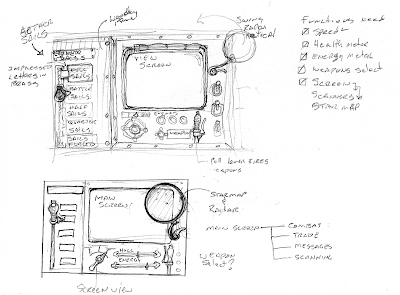 Functions Need
Speed
Health Meter
Energy Meter
Weapons Select
Screen
Scanners
Star Map
Impressed
Letters in
Brass
View
Screen
Full
Sails
Battle
Sails
Half
Sails
Sails
Weapon
Pull lever fires
Main
Screen
Hull
Energy
Starmap
&
Radar
Weapon
Select?
Main Screen
Combat
Trade
Messages
Scanning
Screen View